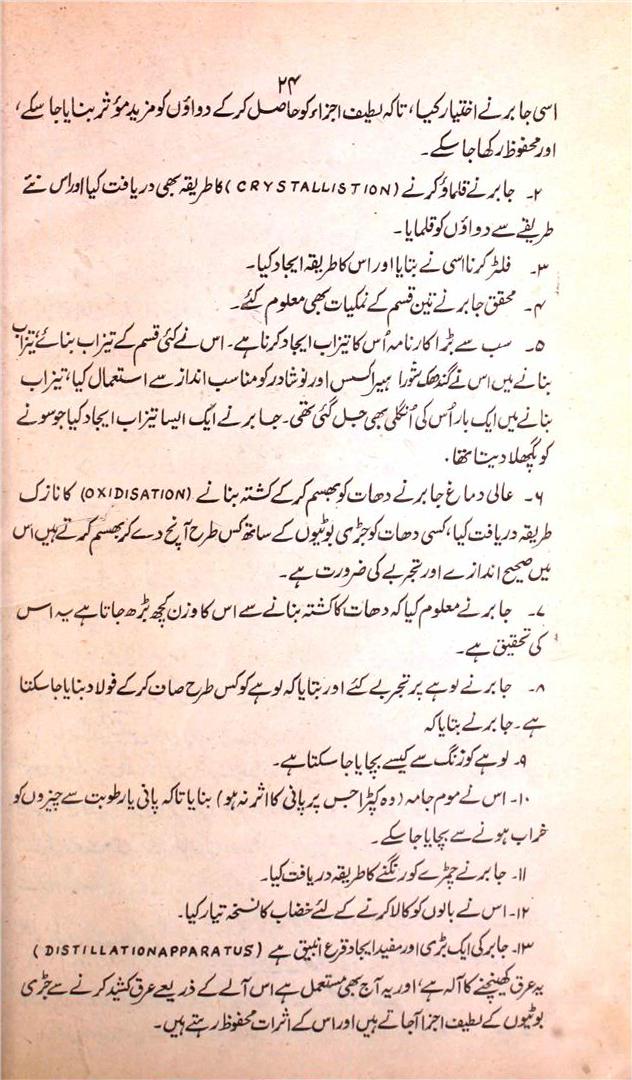 ۲۴
اسی جابر نے اختیار کیا، تاکہ لطیف اجزاء کو حاصل کر کے دواؤں کو مزید مؤثر بنایا جا سکے،
اور محفوظ رکھا جا سکے۔
۲۔ جابر نے قلماؤ کرنے (CRYSTALLISTION) کا طریقہ بھی دریافت کیا اور اس نئے
طریقے سے دواؤں کو قلمایا۔
۳۔ فلٹر کرنا اسی نے بتایا اور اس کا طریقہ ایجاد کیا۔
۴۔ محقق جابر نے تین قسم کے نمکیات بھی معلوم کئے۔
۵۔ سب سے بڑا کارنامہ اُس کا تیزاب ایجاد کرنا ہے۔ اس نے کئی قسم کے تیزاب بنائے، تیزاب
بنانے میں اس نے گندھک شورا ہیرا کسس اور نوشادر کو مناسب انداز سے استعمال کیا، تیزاب
بنانے میں ایک بار اُس کی اُنگلی بھی جل گئی تھی۔ جابر نے ایک ایسا تیزاب ایجاد کیا جو سونے
کو پگھلا دیتا تھا۔
۶۔ عالی دماغ جابر نے دھات کو بھسم کر کے کشتہ بنانے (OXIDISATION) کا نازک
طریقہ دریافت کیا، کسی دھات کو جڑی بوٹیوں کے ساتھ کس طرح آنچ دے کر بھسم کرتے ہیں اس
میں صحیح اندازے اور تجربے کی ضرورت ہے۔
۷۔ جابر نے معلوم کیا کہ دھات کا کشتہ بنانے سے اس کا وزن کچھ بڑھ جاتا ہے یہ اس
کی تحقیق ہے۔
۸۔ جابر نے لوہے پر تجربے کئے اور بتایا کہ لوہے کو کس طرح صاف کر کے فولاد بنایا جا سکتا
ہے۔ جابر نے بتایا کہ
۹۔ لوہے کو زنگ سے کیسے بچایا جا سکتا ہے۔
۱۰۔ اس نے موم جامہ (وہ کپڑا جس پر پانی کا اثر نہ ہو) بنایا تاکہ پانی یا رطوبت سے چیزوں کو
خراب ہونے سے بچایا جا سکے۔
۱۱۔ جابر نے چمڑے کو رنگنے کا طریقہ دریافت کیا۔
۱۲۔ اس نے بالوں کو کالا کرنے کے لئے خضاب کا نسخہ تیار کیا۔
۱۳۔ جابر کی ایک بڑی اور مفید ایجاد قرع انبیق ہے (DISTILLATIONAPPARATUS)
یہ عرق کھینچنے کا آلہ ہے، اور یہ آج بھی مستعمل ہے اس آلے کے ذریعے عرق کشید کرنے سے جڑی
بوٹیوں کے لطیف اجزا آ جاتے ہیں اور اس کے اثرات محفوظ رہتے ہیں۔